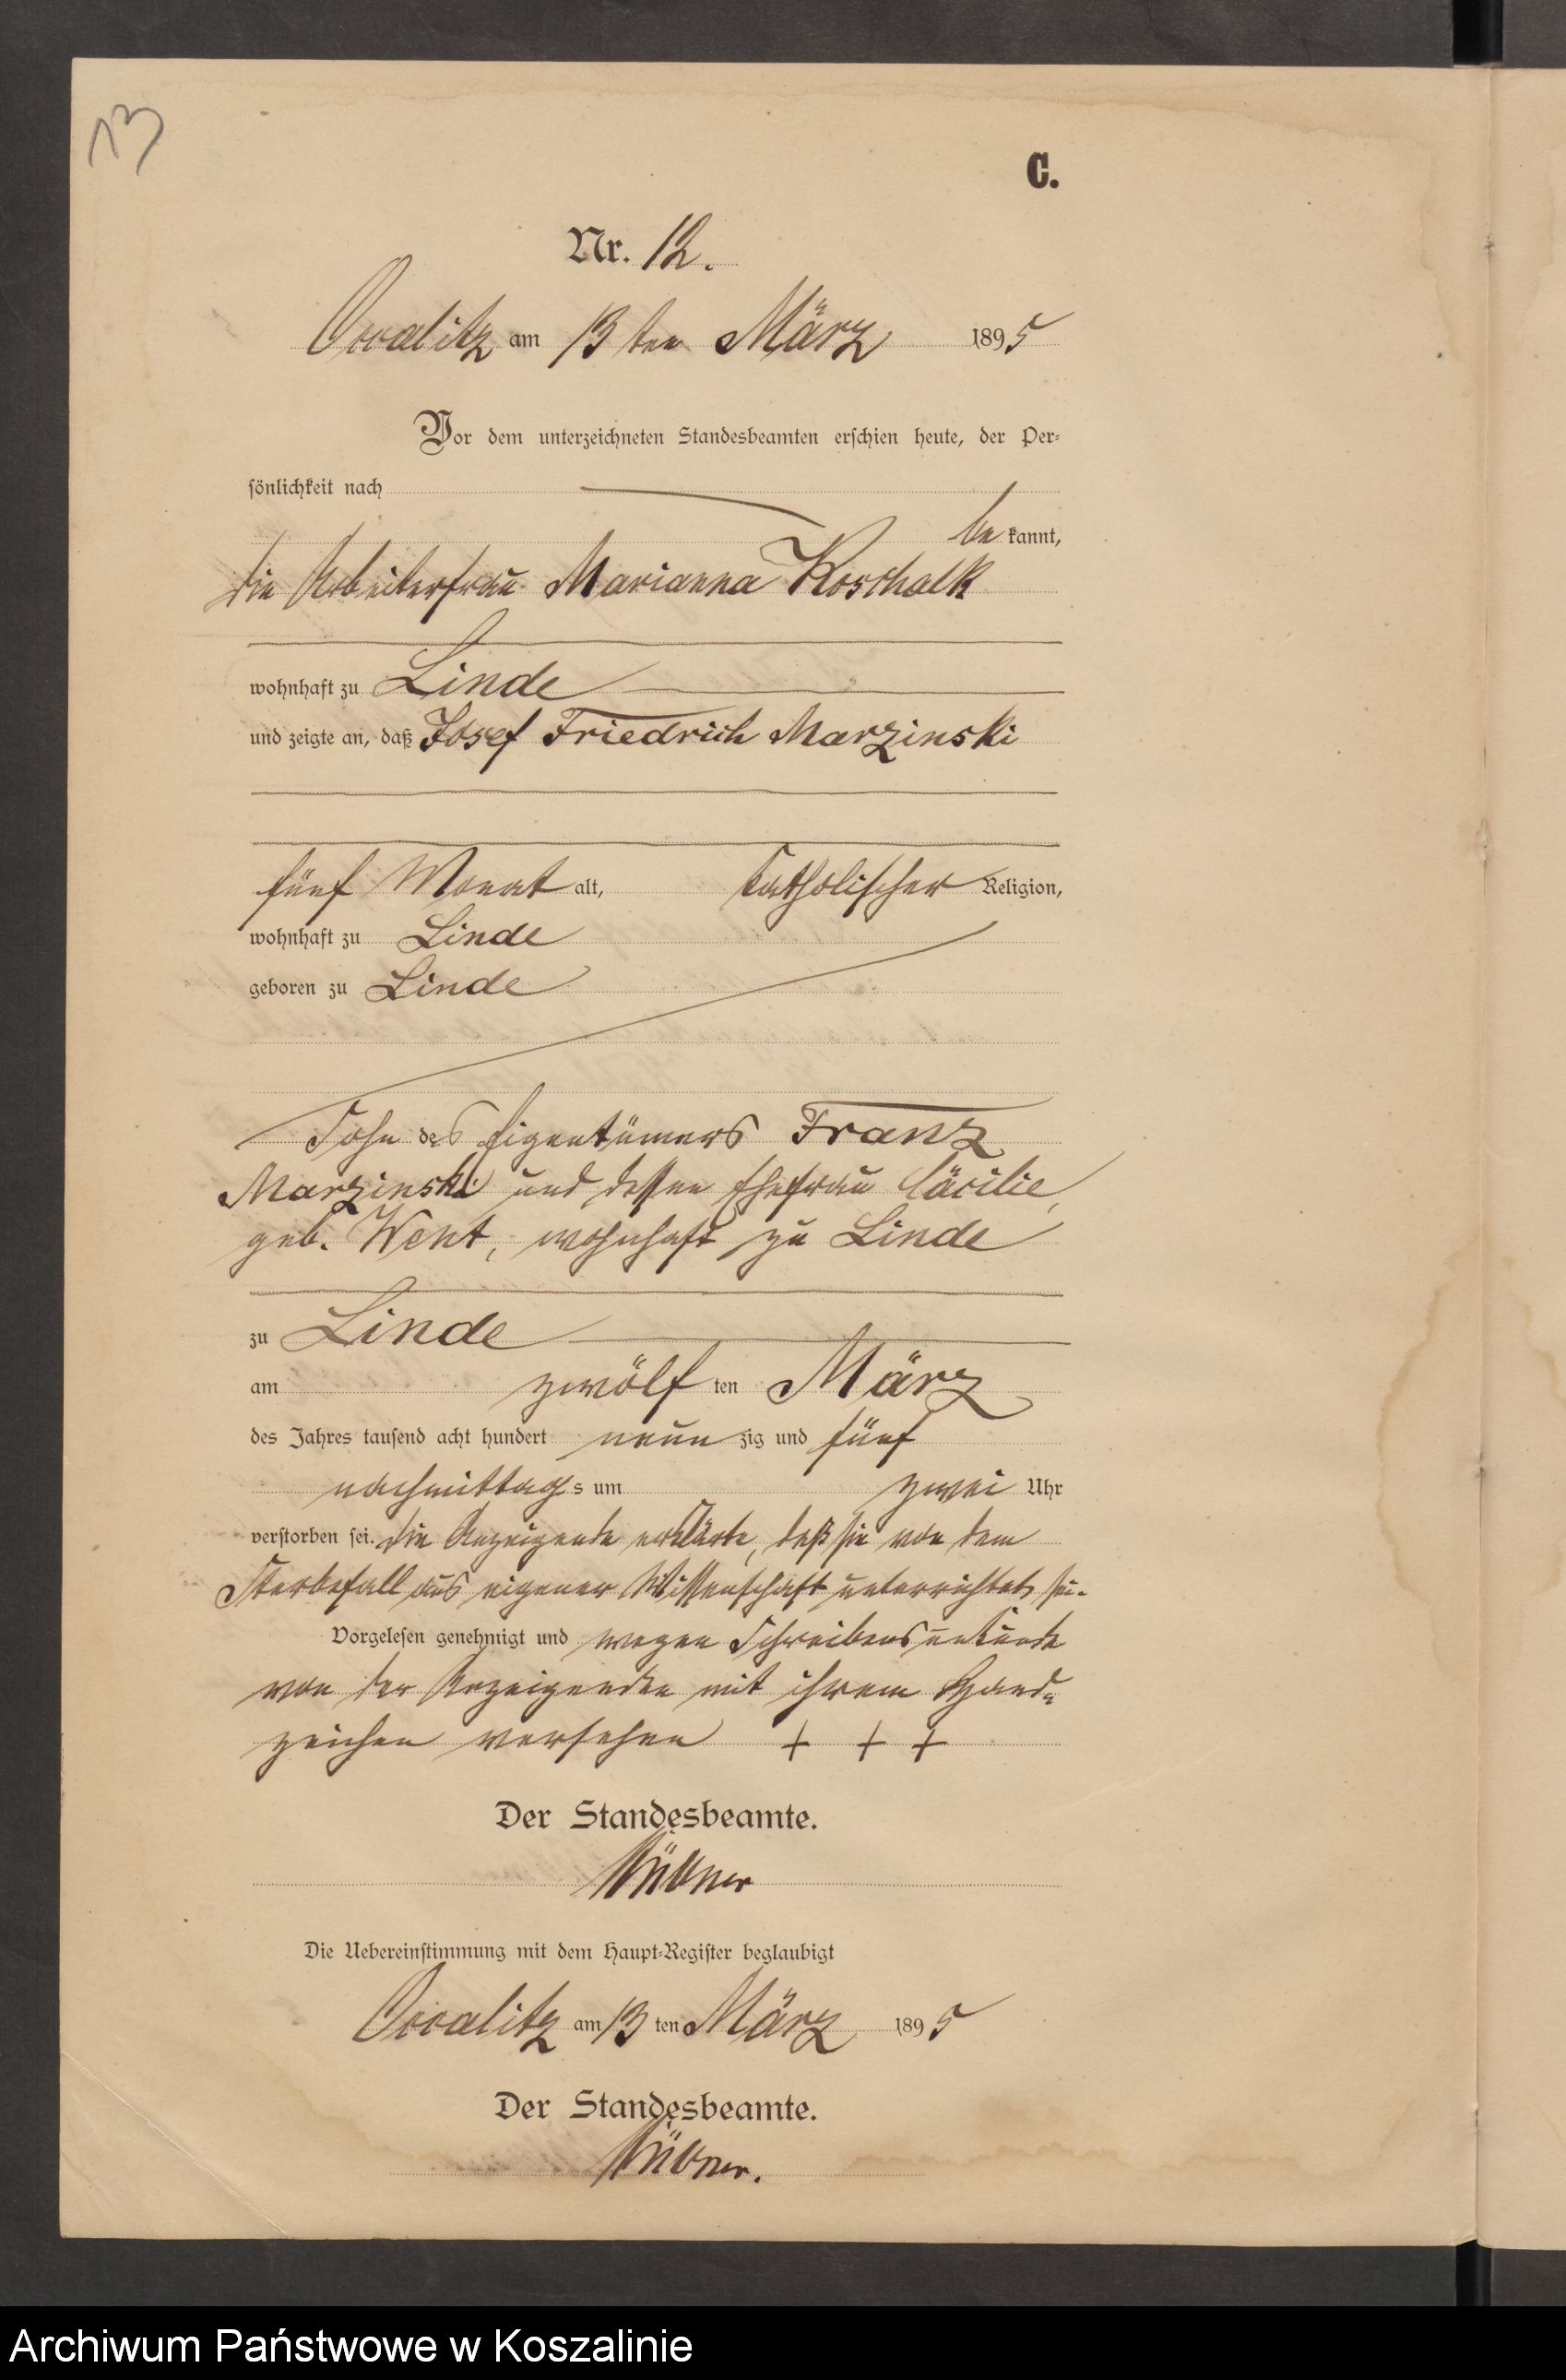 13
C.
Nr. 12.
Occalitz am 13 ten März 1895
Vor dem unterzeichneten Standesbeamten erschien heute, der Per-
sönlichkeit nach
be kannt,
die Arbeiterfrau Marianna Koschalk
wohnhaft zu Linde
und zeigte an, daß Josef Friedrich Marzinski
fünf Monat alt, katholischer Religion,
wohnhaft zu Linde
geboren zu Linde
Sohn des Eigentümers Franz
Marzinski und dessen Ehefrau Cäcilie,
geb. Went, wohnhaft zu Linde
zu Linde
am zwölf ten März
des Jahres tausend acht hundert neun zig und fünf
nachmittags um zwei Uhr
verstorben sei. Die Anzeigende erklärte, daß sie von dem
Sterbefall aus eigener Wissenschaft unterrichtet sei.
Vorgelesen genehmigt und wegen Schreibensunkunde
von der Anzeigenden mit ihrem Hand-
zeichen versehen + + +
Der Standesbeamte.
Die Uebereinstimmung mit dem Haupt-Register beglaubigt
Occalitz am 13 ten März 1895
Der Standesbeamte.
Archiwum Państwowe w Koszalinie